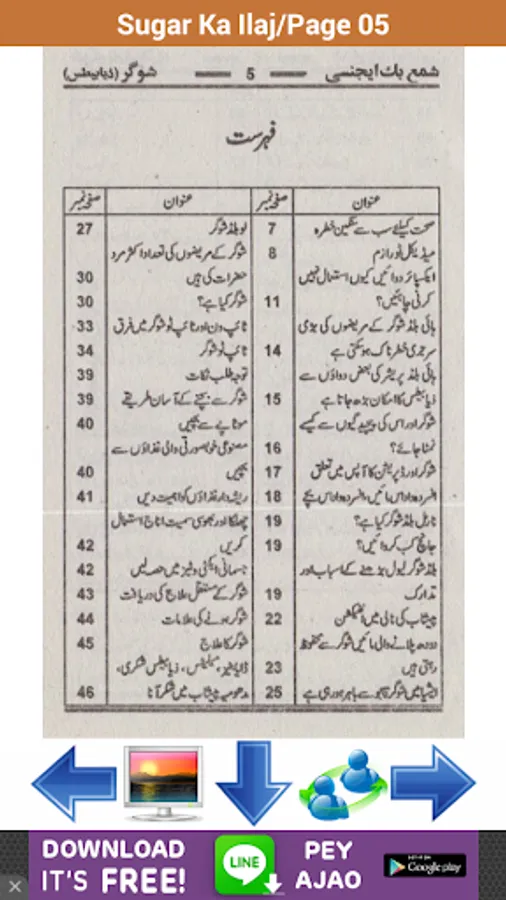 Sugar Ka Ilaj/Page 05
شمع بک ایجنسی — 5 — شوگر (ذیابیطس)
فہرست
عنوان صفحہ نمبر عنوان صفحہ نمبر
صحت کیلئے سب سے سنگین خطرہ 7
میڈیکل ٹورازم 8
ایکسپائر دوائیں کیوں استعمال نہیں
کرنی چاہئیں؟ 11
ہائی بلڈ شوگر کے مریضوں کی بڑی
سرجری خطرناک ہوسکتی ہے 14
ہائی بلڈ پریشر کی بعض دواؤں سے
ذیابیطس کا امکان بڑھ جاتا ہے 15
شوگر اور اس کی پیچیدگیوں سے کیسے
نمٹا جائے؟ 16
شوگر اور ڈپریشن کا آپس میں تعلق 17
افسردہ و اداس مائیں، افسردہ و اداس بچے 18
نارمل بلڈ شوگر کیا ہے؟ 19
جانچ کب کروائیں؟ 19
بلڈ شوگر لیول بڑھنے کے اسباب اور
تدارک 19
پیشاب کی نالی میں انفیکشن 22
دودھ پلانے والی مائیں شوگر سے محفوظ
رہتی ہیں 23
ایشیا میں شوگر قابو سے باہر ہورہی ہے 25
لو بلڈ شوگر 27
شوگر کے مریضوں کی تعداد اکثر مرد
حضرات کی ہیں 30
شوگر کیا ہے؟ 30
ٹائپ ون اور ٹائپ ٹو شوگر میں فرق 33
ٹائپ ٹو شوگر 34
توجہ طلب نکات 39
شوگر سے بچنے کے آسان طریقے 39
موٹاپے سے بچیں 40
مصنوعی خوبصورتی والی غذاؤں سے
بچیں 40
ریشہ دار غذاؤں کو اہمیت دیں 41
چھلکا اور بھوسی سمیت اناج استعمال
کریں 42
جسمانی ایکٹی وٹیز میں حصہ لیں 42
شوگر کے مستقل علاج کی دریافت 43
شوگر ہونے کی علامات 44
شوگر کا علاج 45
ڈایابیٹیز، میلیٹس، ذیابیطس شکری،
مدھومیہ پیشاب میں شکر آنا 46
DOWNLOAD
IT'S FREE!
LINE
PEY
AJAO
Google play